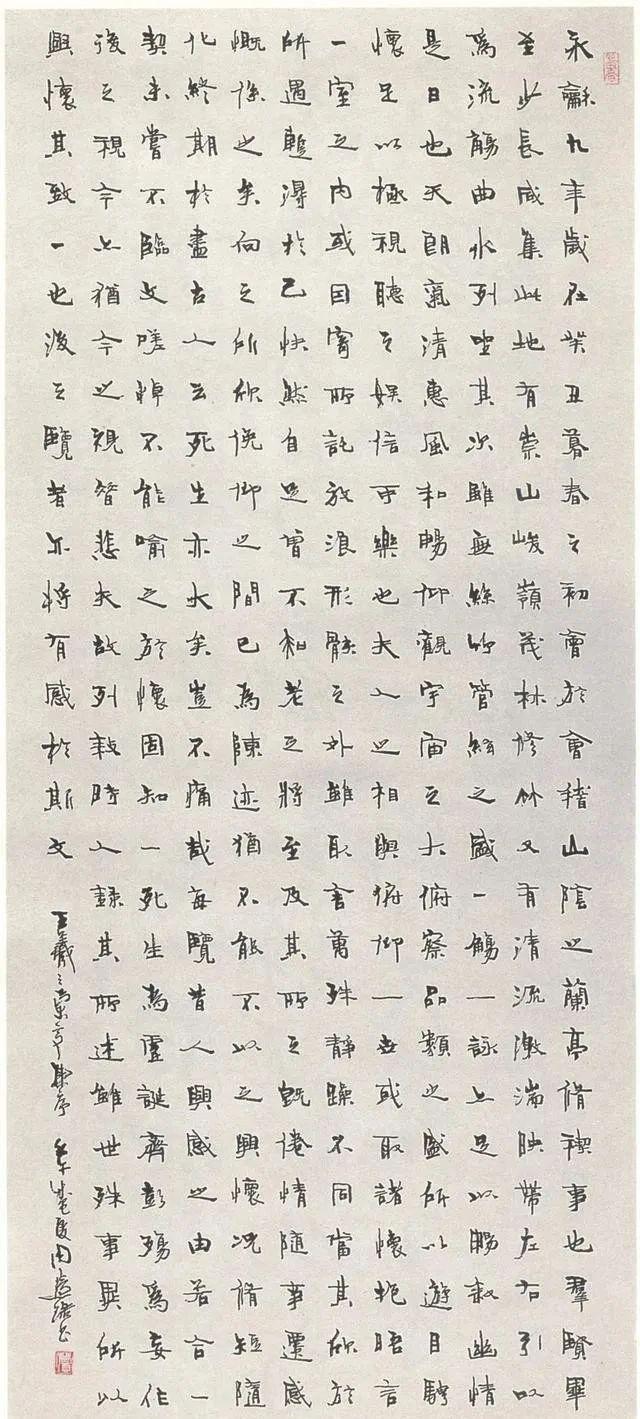 永龢九年歲在癸丑暮春之初會於會稽山陰之蘭亭脩禊事也羣賢畢
至少長咸集此地有崇山峻嶺茂林修竹又有清流激湍映帶左右引以
爲流觴曲水列坐其次雖無絲竹管絃之盛一觴一詠亦足以暢敘幽情
是日也天朗氣清惠風和暢仰觀宇宙之大俯察品類之盛所以遊目騁
懷足以極視聽之娛信可樂也夫人之相與俯仰一世或取諸懷抱晤言
一室之內或因寄所託放浪形骸之外雖取舍萬殊靜躁不同當其欣於
所遇暫得於己快然自足曾不知老之將至及其所之既倦情隨事遷感
慨係之矣向之所欣俛仰之間已為陳迹猶不能不以之興懷況脩短隨
化終期於盡古人云死生亦大矣豈不痛哉每覽昔人興感之由若合一
契未嘗不臨文嗟悼不能喻之於懷固知一死生為虛誕齊彭殤爲妄作
後之視今亦猶今之視昔悲夫故列敘時人錄其所述雖世殊事異所以
興懷其致一也後之覽者亦將有感於斯文
王羲之蘭亭集序